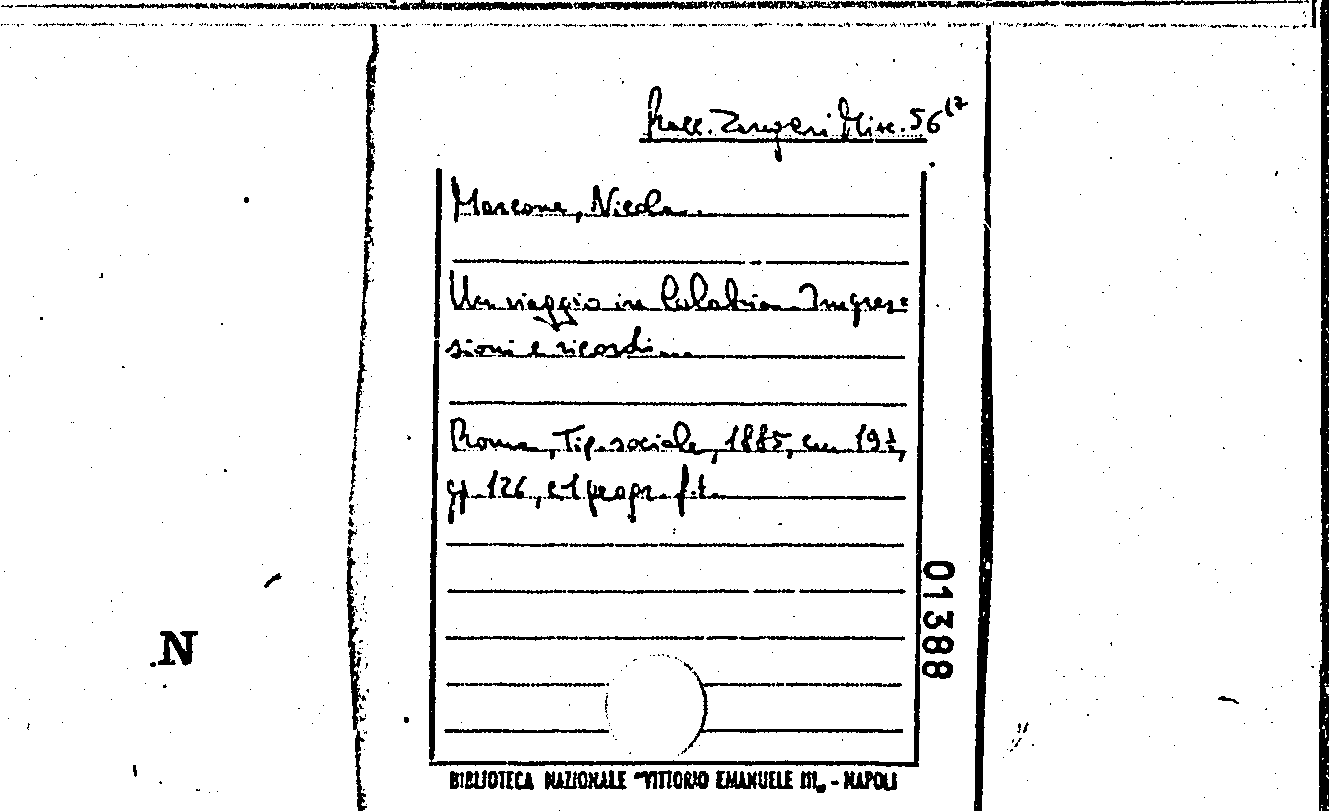 Racc. Zangari Misc. 56 12
Marcone, Nicola.
Un viaggio in Calabria. Impres=
sioni e ricordi...
Roma, Tip. sociale, 1885, cm 19½,
pp. 126, c. 1 geogr. f.t.
01388
N
BIBLIOTECA NAZIONALE "VITTORIO EMANUELE III„ - NAPOLI